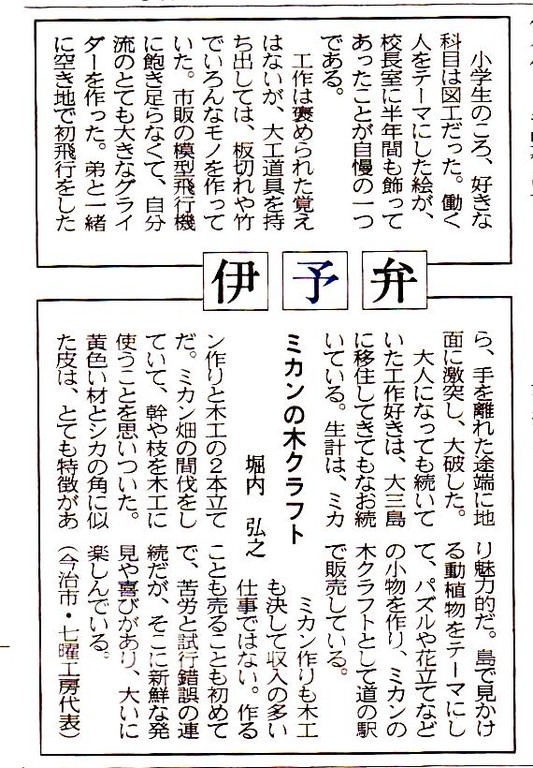 小学生のころ、好きな
科目は図工だった。働く
人をテーマにした絵が、
校長室に半年間も飾って
あったことが自慢の一つ
である。
工作は褒められた覚え
はないが、大工道具を持
ち出しては、板切れや竹
でいろんなモノを作って
いた。市販の模型飛行機
に飽き足らなくて、自分
流のとても大きなグライ
ダーを作った。弟と一緒
に空き地で初飛行をした
伊予弁
ら、手を離れた途端に地
面に激突し、大破した。
大人になっても続いて
いた工作好きは、大三島
に移住してきてもなお続
いている。生計は、ミカ
ミカンの木クラフト
堀内 弘之
ン作りと木工の2本立て
だ。ミカン畑の間伐をし
ていて、幹や枝を木工に
使うことを思いついた。
黄色い材とシカの角に似
た皮は、とても特徴があ
り魅力的だ。島で見かけ
る動植物をテーマにし
て、パズルや花立てなど
の小物を作り、ミカンの
木クラフトとして道の駅
で販売している。
ミカン作りも木工
も決して収入の多い
仕事ではない。作る
ことも売ることも初めて
で、苦労と試行錯誤の連
続だが、そこに新鮮な発
見や喜びがあり、大いに
楽しんでいる。
（今治市・七曜工房代表）